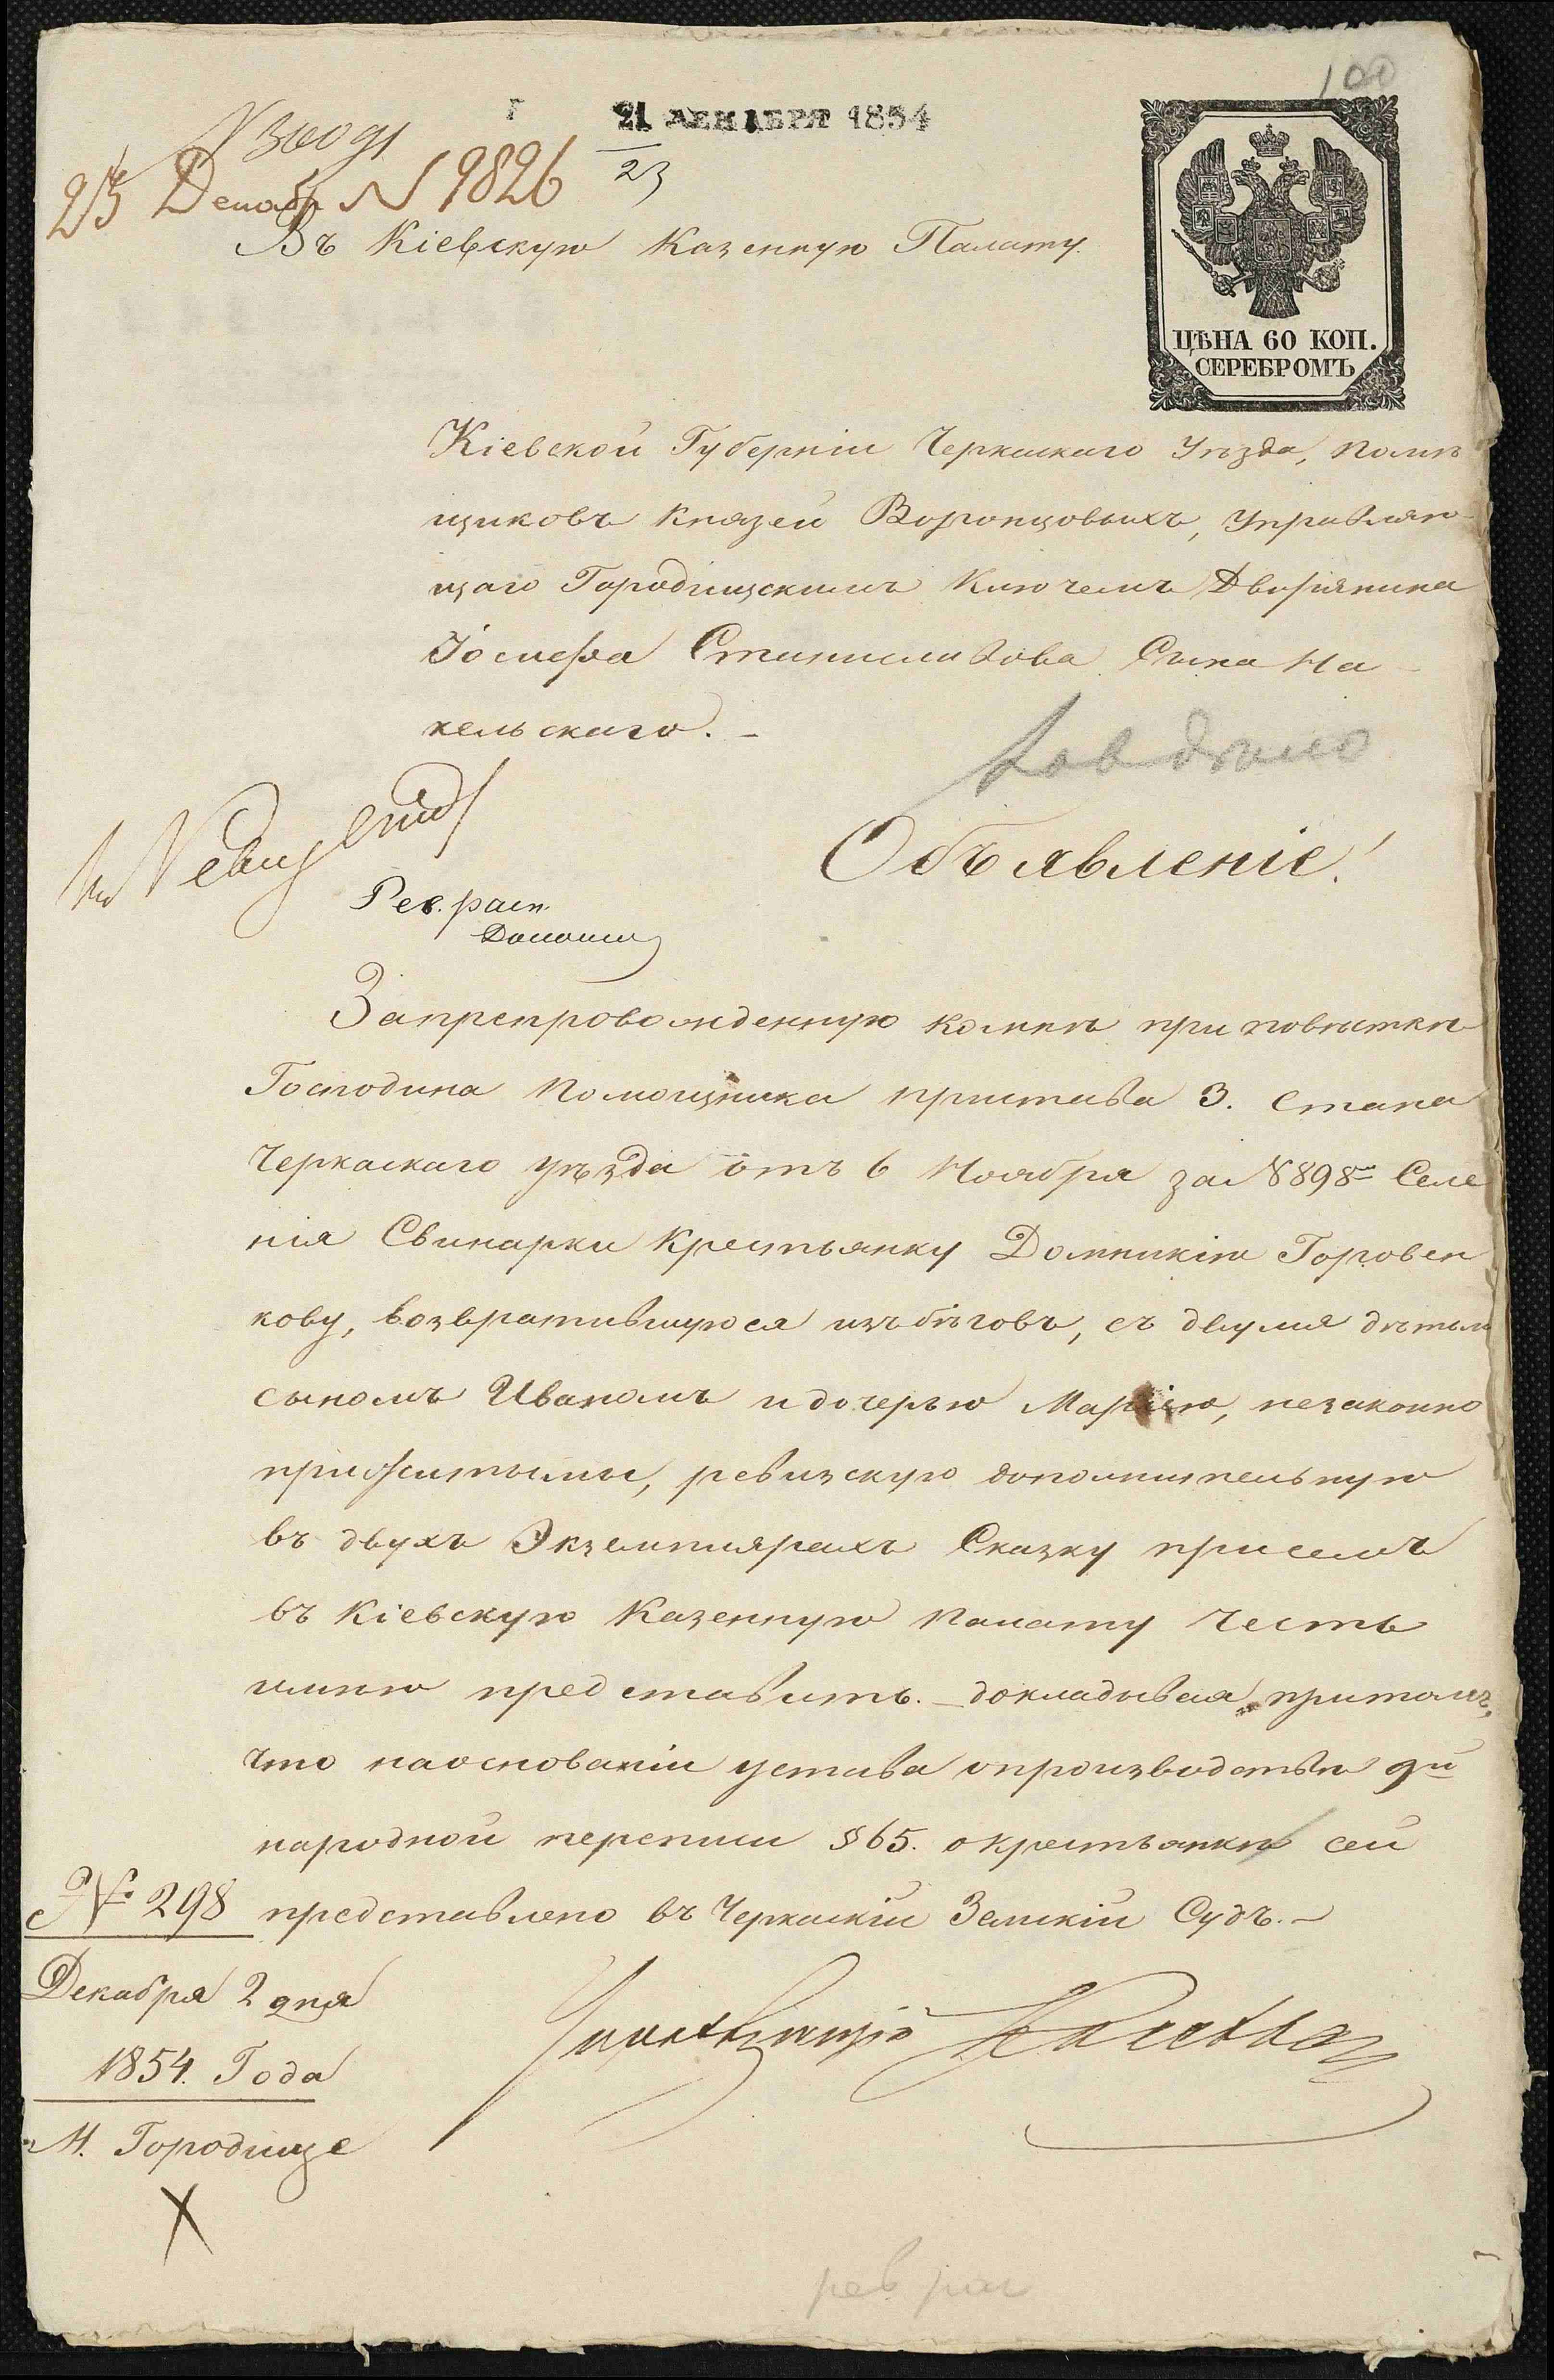 100
21 ДЕКАБРЯ 1854
23
23 Декабр N 9826
Въ Кіевскую Казенную Палату.
ЦѢНА 60 КОП.
СЕРЕБРОМЪ
Кіевской Губерніи Черкаскаго Уѣзда, Помѣ
щиковъ Князей Воронцовыхъ, Управляю-
щаго Городищскимъ Ключемъ Дворянина
Іосифа Станиславова Сына На-
кельскаго.-
Объявленіе!
Рев. расп.
Запрепровожденную комнѣ при повѣсткѣ
Господина Помощника пристава 3. Стана
Черкаскаго уѣзда отъ 6 Ноября за N 898м Селе
нія Свинарки Крестьянку Домникію Горовен
кову, возвратившуюся изъ бѣговъ, съ двумя дѣтьми
сыномъ Иваномъ и дочерью Маріею, незаконно
прижитыми, ревизскую дополнительную
въ двухъ Экземплярахъ Сказку присемъ
въ Кіевскую Казенную Палату честь
имѣю представить. - докладывая притомъ,
что наосновании устава опроизводствѣ 9й
народной переписи § 65. окрестьянкѣ сей
№ 298 представлено въ Черкаскій Земскій Судъ.-
Декабря 2 дня
1854. Года
М. Городище
Управляющій
X
рев рас